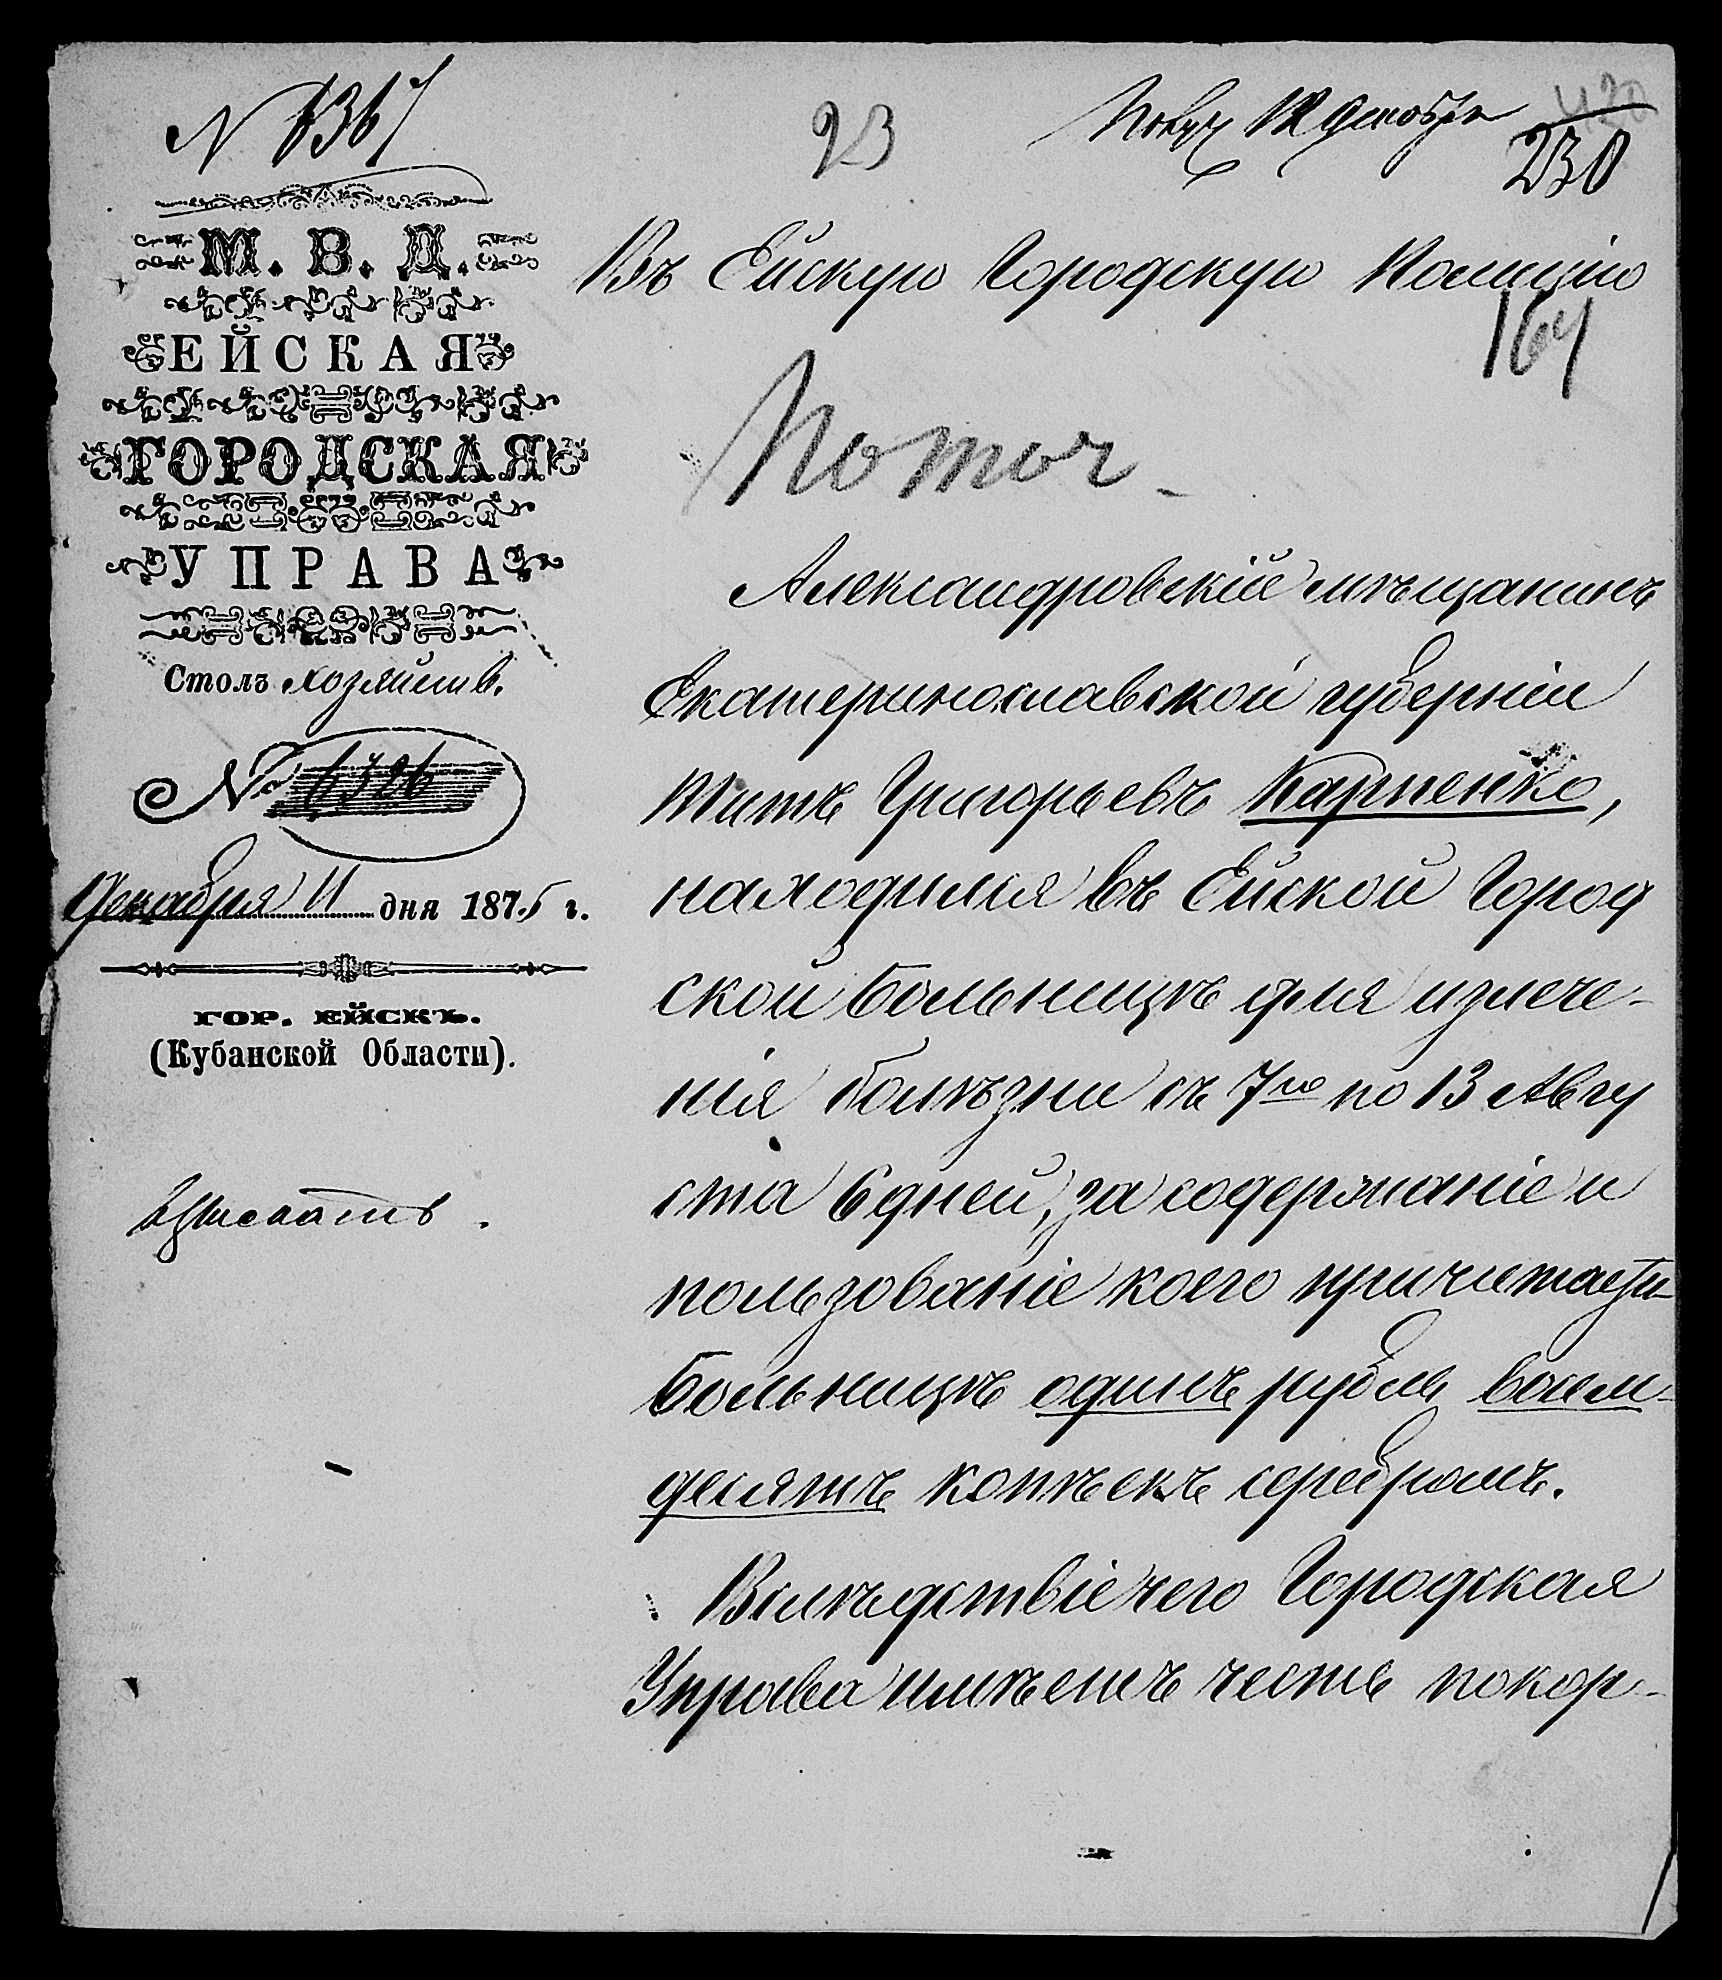 23
Получ 12 Декабря
230
М. В. Д.
ЕЙСКАЯ
ГОРОДСКАЯ
УПРАВА
Столъ хозяйств.
№ 6326
Декабря 11 дня 1875 г.
ГОР. ЕЙСКЪ.
(Кубанской Области).
Въ Ейскую Городскую Полицію
164
Александровскій мѣщанинъ
Екатеринославской губерніи
Титъ Григорьевъ Карпенко,
находился въ Ейской Город
ской больницѣ для излече-
нія болѣзни съ 7го по 13 Авгу
ста 6 дней, за содержаніе и
пользованіе коего причитает.
больницѣ одинъ рубль восем-
десятъ копѣекъ серебромъ.
Вслѣдствіе чего Городская
Управа имѣетъ честь покор-